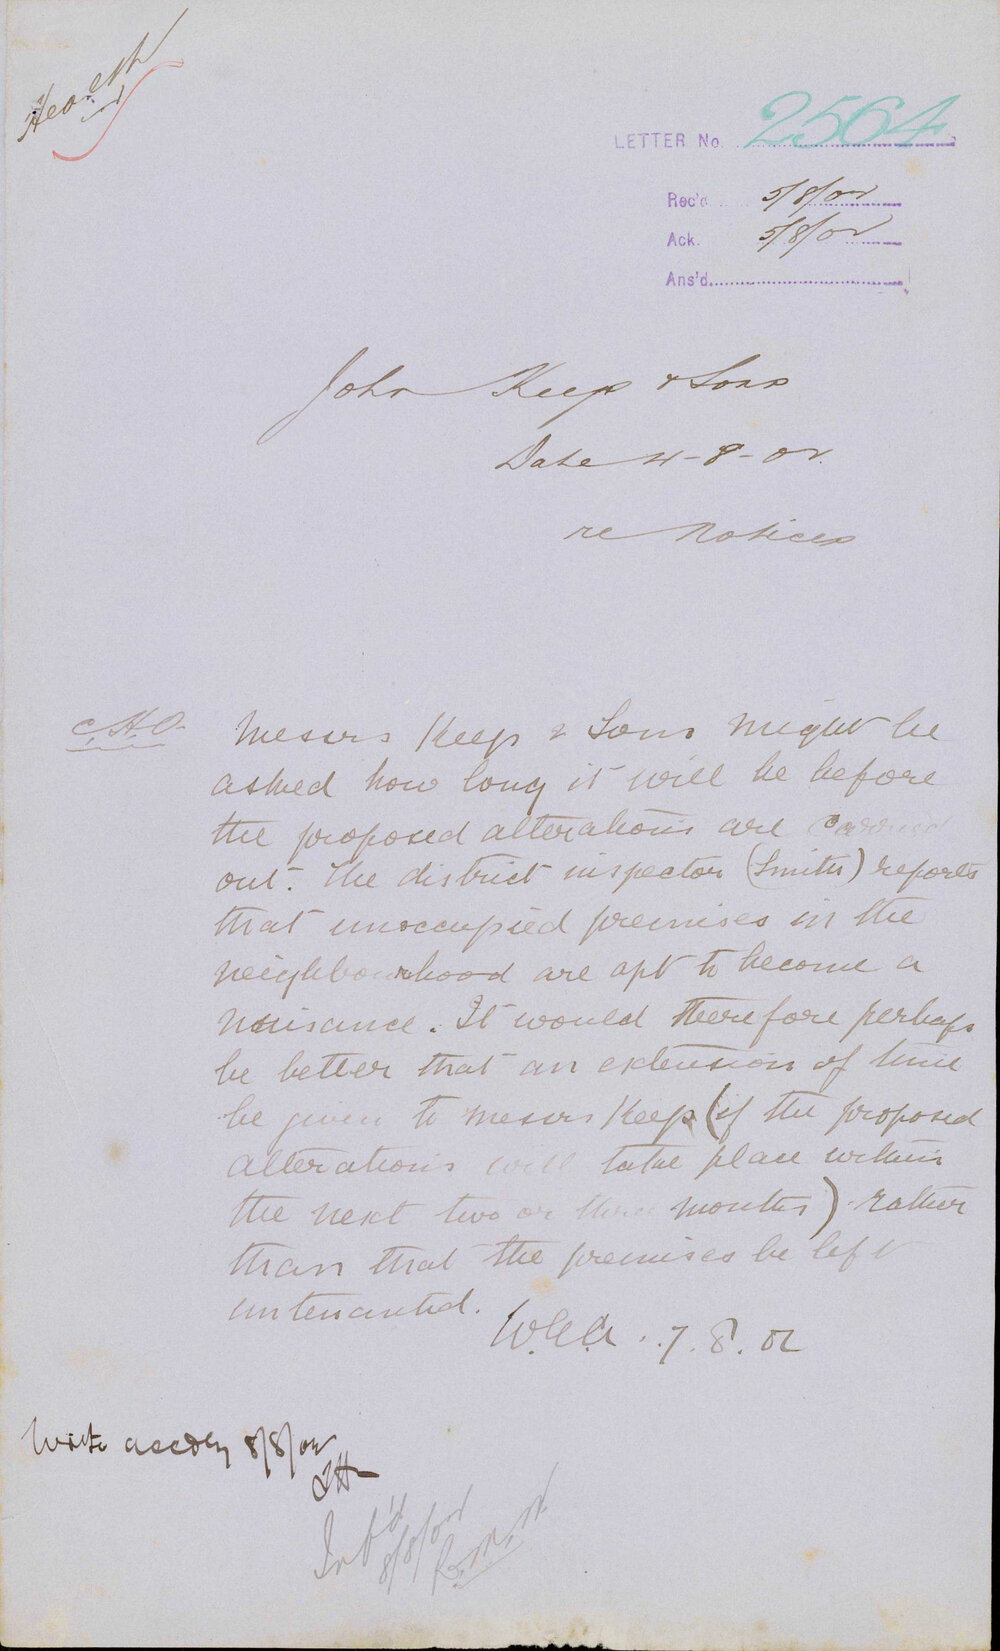 Health
LETTER No. 2564
Rec'd 5/8/02
Ack. 5/8/02
Ans'd
John Keep & Sons
Date 4-8-02.
re Notices
C.H.O. Messrs Keep & Sons might be
asked how long it will be before
the proposed alterations are carried
out. The district inspector (Smith) reports
that unoccupied premises in the
neighbourhood are apt to become a
nuisance. It would therefore perhaps
be better that an extension of time
be given to Messrs Keep (if the proposed
alterations will take place within
the next two or three months) rather
than that the premises be left
untenanted.
7.8.02
Write accdly 8/8/02
Inf'd
8/8/02